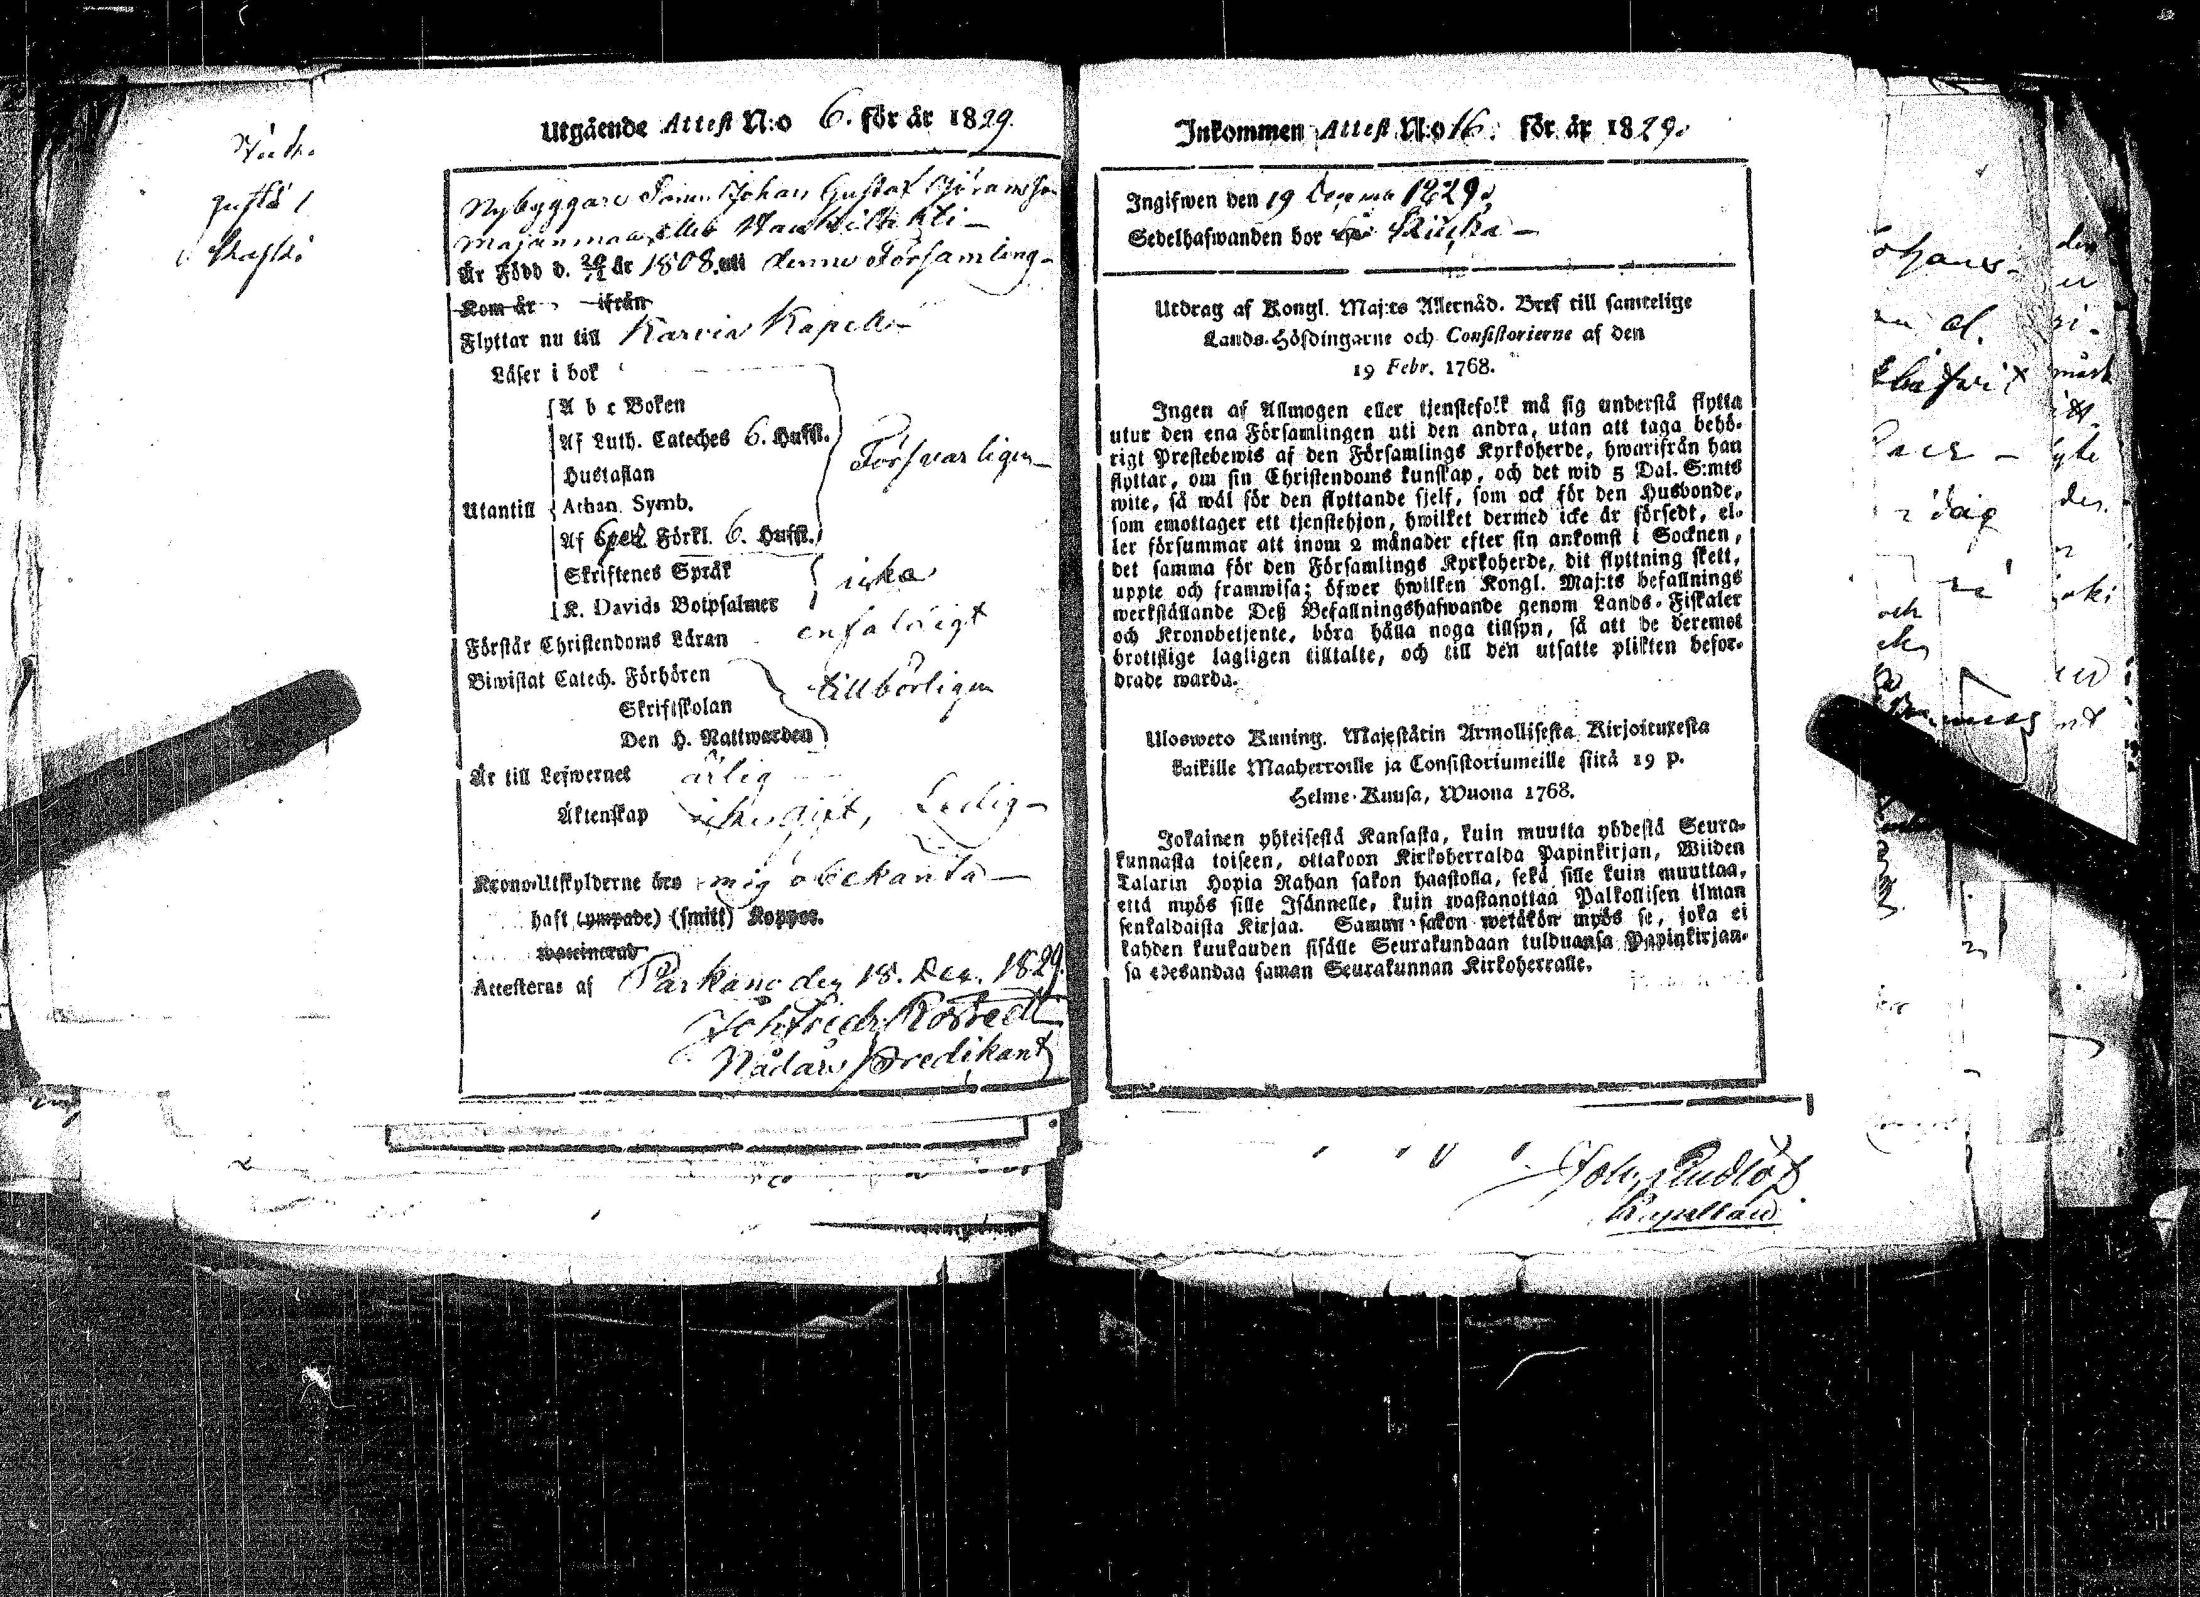 Utgående Attest N:o 6. för år 1829.
Nybyggare Sonen Johan Gustaf Göransson
Majanmaa eller
Är Född d. 20/2 år 1808 uti denne Församling
Kom år ifrån
Flyttar nu till Karvia Kapell
Läser i bok
A b c Boken
Af Luth. Cateches 6. Hufst.
Hustaflan
Försvarligen
Utantill Athan. Symb.
Af Förkl. 6. Hufst.
Skriftenes Språk
icke
K. Davids Botpsalmer
Förstår Christendoms Läran enfaldigt
Biwistat Catech. Förhören
tillbörligen
Skriftskolan
Den H. Nattwarden
Är till Lefwernet ärlig
Äktenskap icke gift, Ledig
KronoUtskylderne äro mig obekanta
haft (ympade) (smitt) Koppor.
waccinerad
Attesteras af Parkano den 18. Dec. 1829.
Joh Fredr
Nådårs Predikant
Inkommen Attest N:o 16. för år 1829.
Ingifwen den 19 December 1829.
Sedelhafwanden bor
Utdrag af Kongl. Maj:ts Allernåd. Bref till samtelige
Lands-Höfdingarne och Consistorierne af den
19 Febr. 1768.
Ingen af Allmogen eller tjenstefolk må sig understå flytta
utur den ena Församlingen uti den andra, utan att taga behö-
rigt Prestebewis af den Församlings Kyrkoherde, hwarifrån han
flyttar, om sin Christendoms kunskap, och det wid 5 Dal. S:mts
wite, så wäl för den flyttande sjelf, som ock för den Husbonde,
som emottager ett tjenstehjon, hwilket dermed icke är försedt, el-
ler försummar att inom 2 månader efter sin ankomst i Socknen,
det samma för den Församlings Kyrkoherde, dit flyttning skett,
uppte och framwisa; öfwer hwilken Kongl. Maj:ts befallnings
werkställande Deß Befallningshafwande genom Lands-Fiskaler
och Kronobetjente, böra hålla noga tillsyn, så att de deremot
brottslige lagligen tilltalte, och till den utsatte plikten befor-
drade warda.
Ulosweto Kuning. Majestätin Armollisesta Kirjoituxesta
kaikille Maaherroille ja Consistoriumeille siitä 19 p.
Helme-Kuusa, Wuona 1768.
Jokainen yhteisestä Kansasta, kuin muutta yhdestä Seura-
kunnasta toiseen, ottakoon Kirkoherralda Papinkirjan, Wiiden
Talarin Hopia Rahan sakon haastolla, sekä sille kuin muuttaa,
että myös sille Isännelle, kuin wastanottaa Palkollisen ilman
senkaldaista Kirjaa. Saman sakon wetäkön myös se, joka ei
kahden kuukauden sisälle Seurakundaan tulduansa Papinkirjan-
sa edesandaa saman Seurakunnan Kirkoherralle.